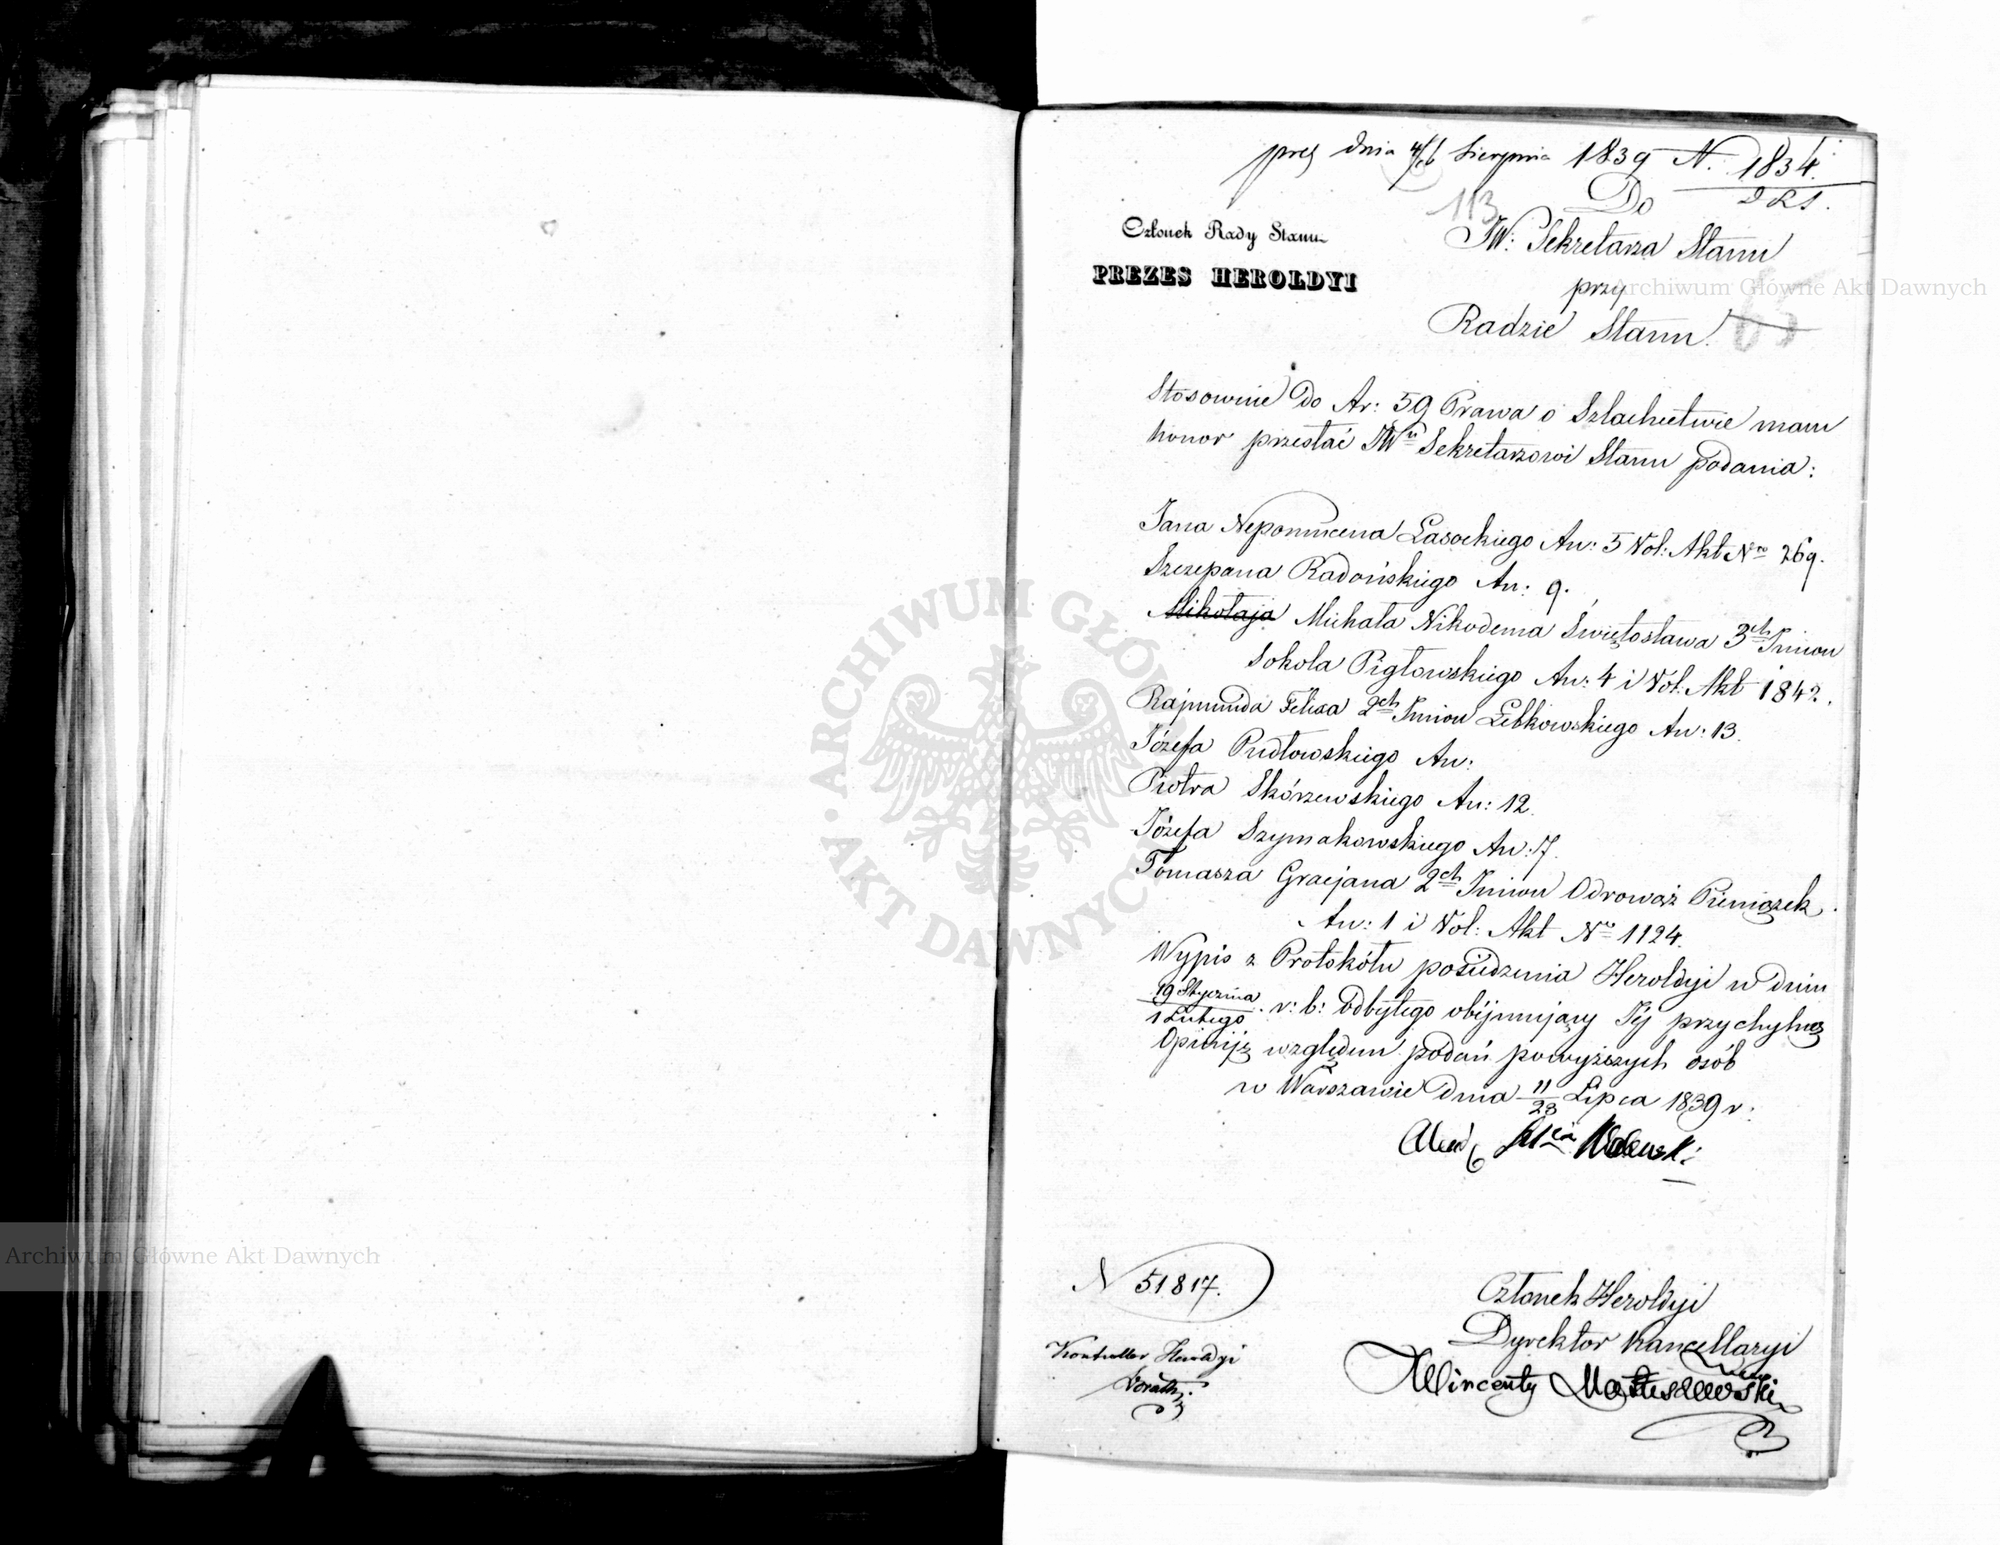 prez dnia 4/16 Sierpnia 1839 N. 1834.
113
Do
Członek Rady Stanu
JW: Sekretarza Stanu
PREZES HEROLDYI
przy
Radzie Stanu.
Stosownie do Ar: 59 Prawa o Szlachectwie mam
honor przesłać JWu Sekretarzowi Stanu podania:
Jana Nepomucena Łasockiego An: 5 Vol: Akt Nro 269.
Szczepana Radońskiego An: 9.
Mikołaja Michała Nikodema Świętosława 3ch Imion
Sokola Pigłowskiego An: 4 i Vol: Akt 1842.
Rajmunda Felixa 2ch Imion Łebkowskiego An: 13.
Józefa Pudłowskiego An:
Piotra Skórzewskiego An: 12.
Józefa Szymakowskiego An: 17.
Tomasza Gracjana 2ch Imion Odrowąż Pieniążek.
An: 1 i Vol: Akt No 1124.
Wypis z Protokółu posiedzenia Heroldyi w dniu
19 Stycznia
1 Lutego r: b: odbytego obejmujący Jej przychylną
Opiniję względem podań powyższych osób
w Warszawie dnia 11/23 Lipca 1839 r:
N 51817.
Członek Heroldyi
Dyrektor Kancellaryi
Kontroller Heroldyi
Wincenty Matuszewski
ARCHIWUM GŁÓWNE AKT DAWNYCH
Archiwum Główne Akt Dawnych
Archiwum Główne Akt Dawnych